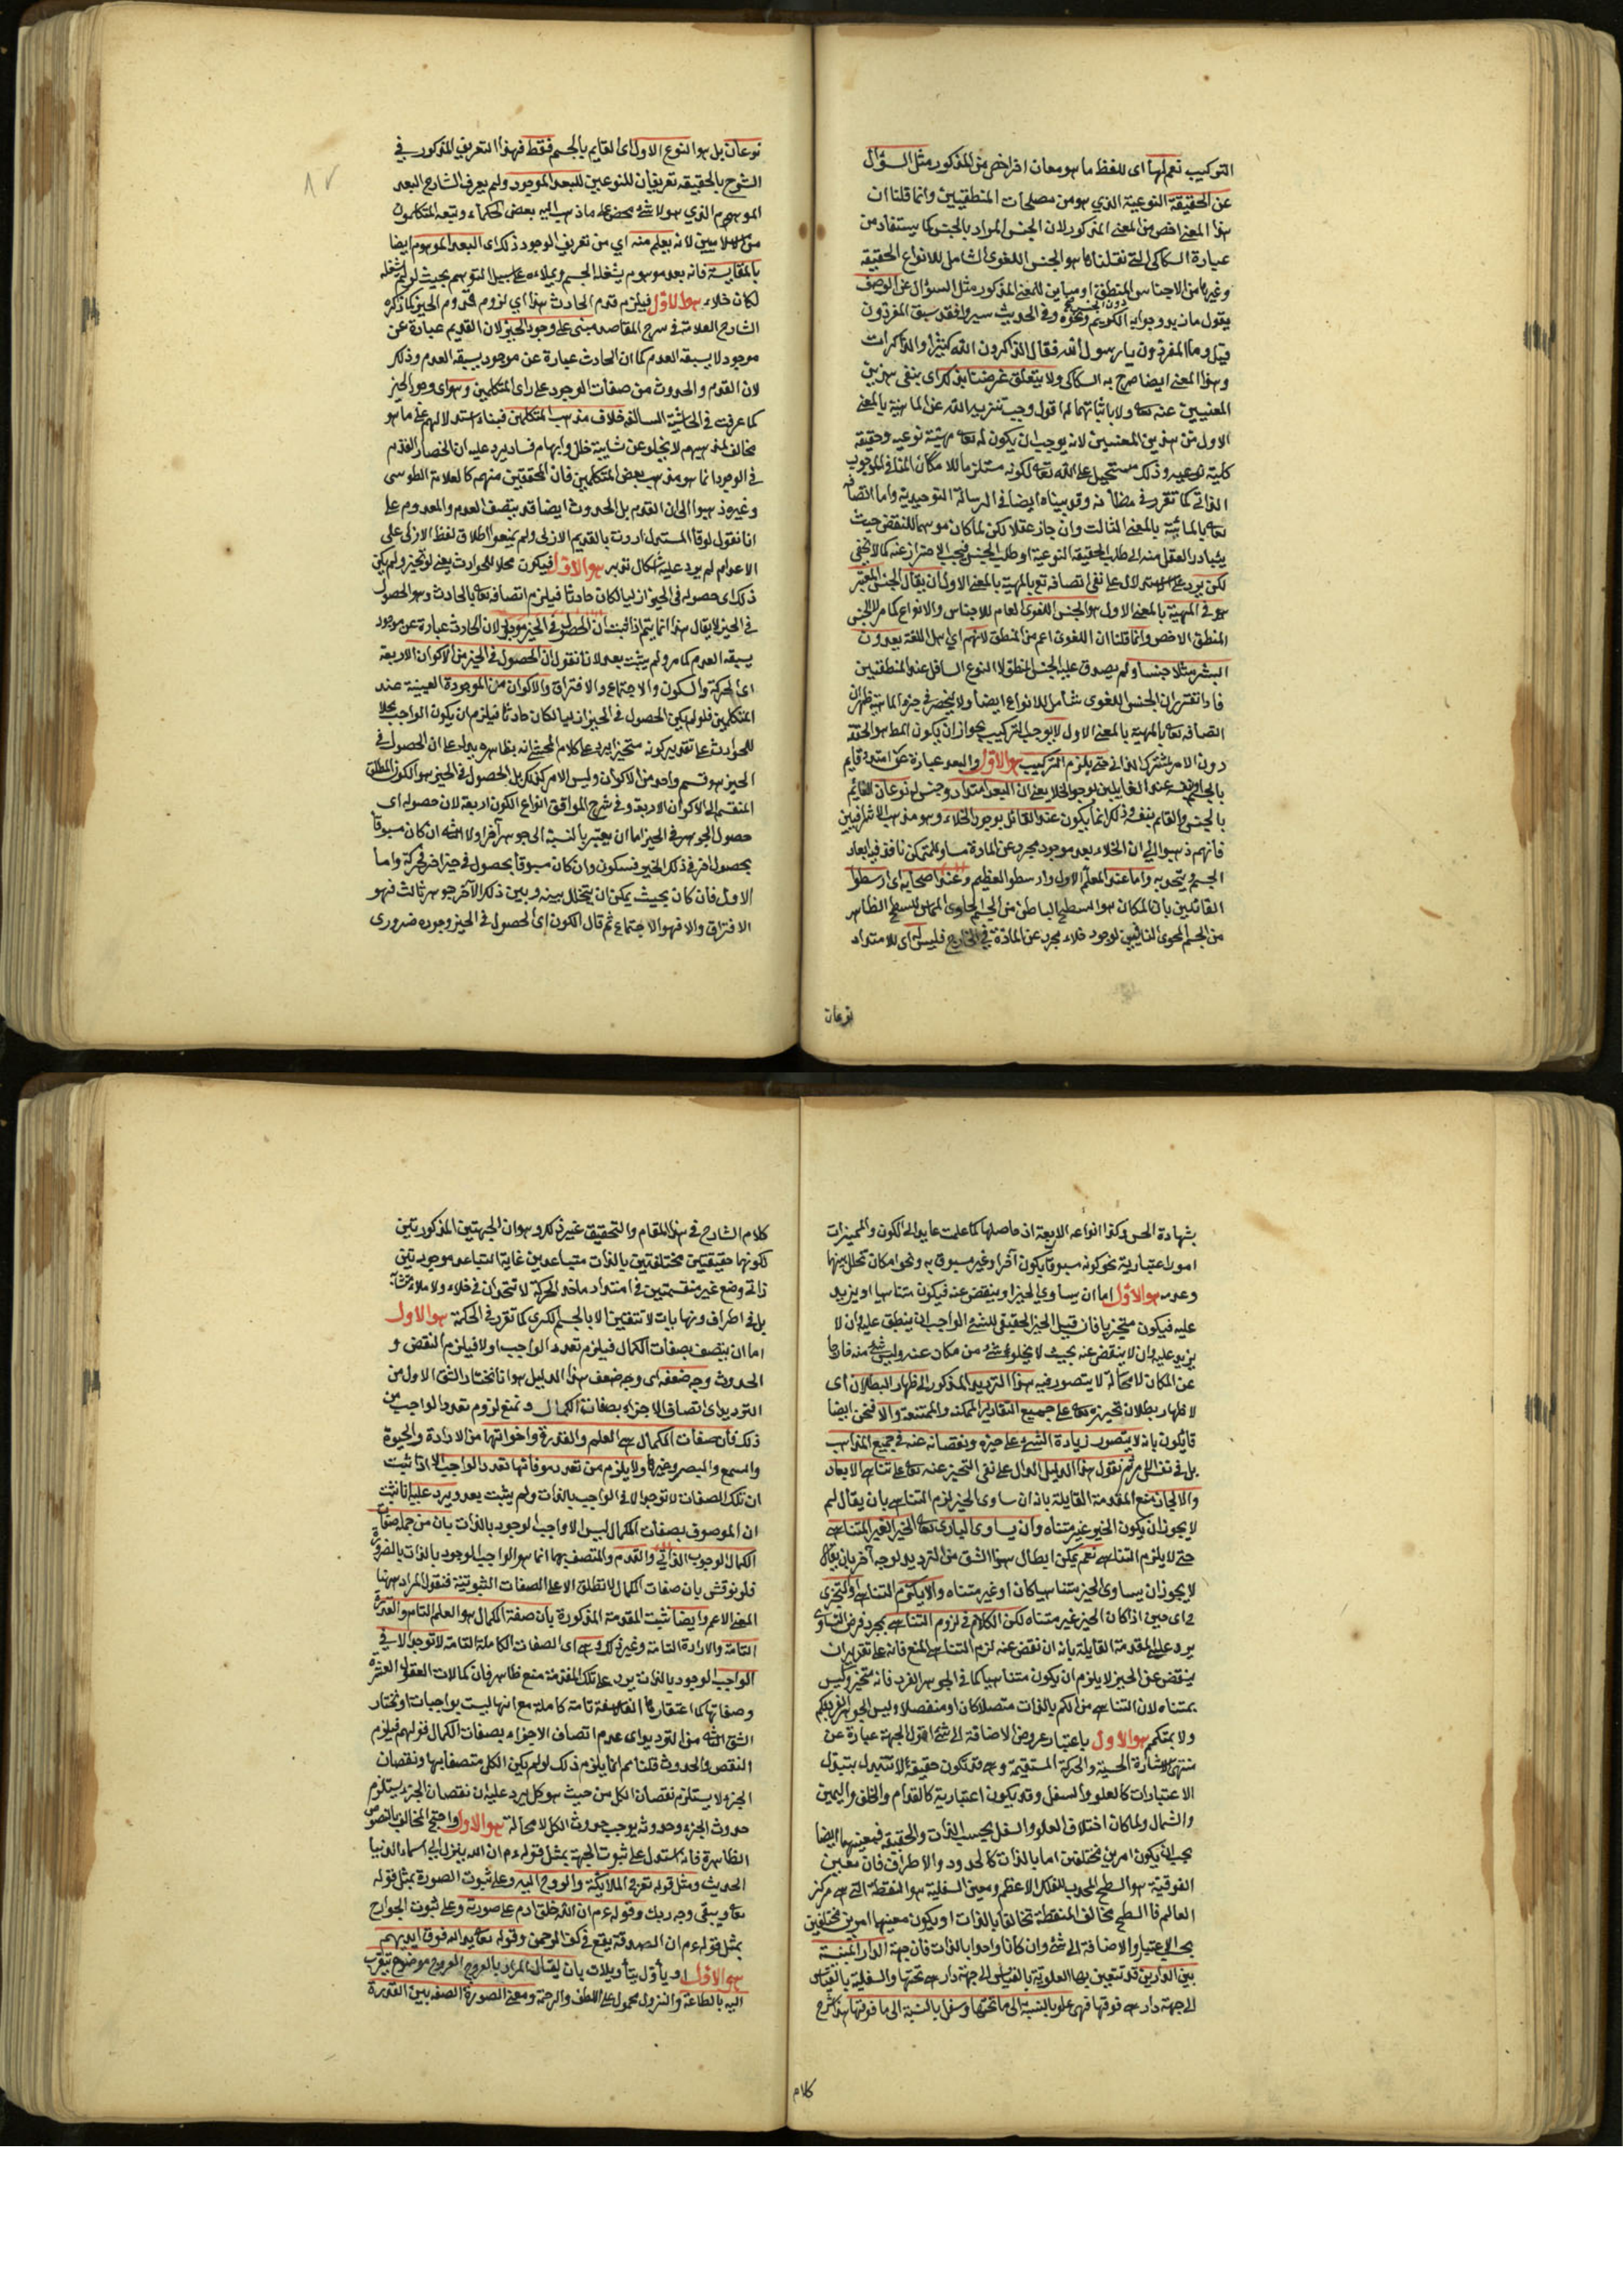 التركيب نعم لها اى للفظ ما هو معان اخر اخص من المذكور مثل السؤال
عن الحقيقة النوعية الذي هو من مصطلحات المنطقيين وانما قلنا ان
هذا المعنى اخص من المعنى المذكور لان الجنس المراد بالجنس كما يستفاد من
عبارة السكاكى التى نقلناها هو الجنس اللغوى الشامل للانواع الحقيقة
وغيرها من الاجناس المنطق او مباين للمعنى المذكور مثل السؤال عن الوصف
يقول ما زيد وجوابه الكريم ونحوه وفى الحديث سيروا فقد سبق المفردون
قيل وما المفردون يا رسول الله فقال الذاكرون الله كثيرا والذاكرات
وهذا المعنى ايضا صرح به السكاكى ولا يتعلق غرضنا بذكره اى بنفى هذين
المعنيين عنه تعالى ولا باثباتهما له اقول وجب تنزيه الله عن الماهية بالمعنى
الاول من هذين المعنيين لانه يوجب ان يكون له تعالى مهية نوعية وحقيقة
كلية نوعية وذلك مستحيل على الله تعالى لكونه مستلزما للامكان المنافى للوجوب
الذاتى كما تقرر فى مظانه وقد بيناه ايضا فى الرسالة التوحيدية واما اتصافه
تعالى بالمائية بالمعنى الثالث وان جاز عقلا لكن لما كان موهما للنقض حيث
يتبادر العقل منه الى طلب الحقيقة النوعية او طلب الجنس فيجب الاحتراز عنه كما لا يخفى
لكن يرد على الاستدلال على نفى اتصافه تعالى بالمهية بالمعنى الاول ان يقال الجنس المعتبر
هو فى المهية بالمعنى الاول هو الجنس اللغوى العام للاجناس والانواع كما مر لا الجنس
المنطق الاخص وانما قلنا ان اللغوى اعم من المنطق لانهم اى اهل اللغة يعدون
البشر مثلا جنسا ولم يصدق عليه الجنس المنطق لا النوع السافل عند المنطقيين
فاذا تقرر ان الجنس اللغوى شامل للانواع ايضا ولا ينحصر فى جزء الماهية ظهر ان
اتصافه تعالى بالمهية بالمعنى الاول لا يوجب التركيب بجواز ان يكون المط هو الحقة
دون الامر المشترك الذاتى حتى يلزم التركيب هو الاول والبعد عبارة عن امتداد قايم
بالجسم او بنفسه عند القايلين بوجود الخلا يعنى ان البعد امتداد وجنس له نوعان القايم
بالجسم والقايم بنفسه وذلك انما يكون عند القائل بوجود الخلاء وهو مذهب الاشراقيين
فانهم ذهبوا الى ان الخلاء بعد موجود مجرد عن المادة مساو للمتمكن نافذ فيه ابعاد
الجسم ويتحد به واما عند المعلم الاول وارسطو العظيم وعند اصحابه اى ارسطو
القائلين بان المكان هو السطح الباطن من الجسم الحاوى المماس للسطح الظاهر
من الجسم المحوى النافين لوجود خلاء مجرد عن المادة فى الخارج فليس له اى للامتداد
نوعان
نوعان بل هو النوع الاول اى القايم بالجسم فقط فهذا التعريف المذكور فى
الشرح بالحقيقة تعريفان للنوعين للبعد الموجود ولم يعرف الشارح البعد
الموهوم الذي هو لا شئ محض على ما ذهب اليه بعض الحكماء وتبعه المتكلمون
من الاسلاميين لانه يعلم منه اي من تعريف الوجود ذلك اى البعد الموهوم ايضا
بالمقايسة فانه بعد موهوم يشغله الجسم ويملاءه على سبيل التوهم بحيث لو لم يشغله
لكان خلاء هو الاول فيلزم قدم الحادث هذا اي لزوم قدم الحيز كما ذكره
الشارح العلامة فى شرح المقاصد مبنى على وجود الحيز لان القديم عبارة عن
موجود لا يسبقه العدم كما ان الحادث عبارة عن موجود يسبقه العدم وذلك
لان القدم والحدوث من صفات الوجود على راى المتكلمين وهو اى وجود الحيز
كما عرفت فى الحاشية السالفة خلاف مذهب المتكلمين فبناء استدلالهم على ما هو
مخالف لمذهبهم لا يخلو عن شايبة خلل وابهام فساد يرد عليه ان انحصار القدم
فى الوجود انما هو مذهب بعض المتكلمين فان المحققين منهم كالعلامة الطوسى
وغيره ذهبوا الى ان القدم بل الحدوث ايضا قد يتصف العدم والمعدوم على
انا نقول لو قال المستدل اردت بالقديم الازلى ولم يمنعوا اطلاق لفظ الازلى على
الاعدام لم يرد عليه اشكال تدبر هو الاول فيكون محلا للحوادث يعنى لو تحيز ولم يكن
ذلك اى حصوله فى الحيز ازليا لكان حادثا فيلزم اتصافه تعالى بالحادث وهو الحصول
فى الحيز لا يقال هذا انما يتم اذا ثبت ان الحصول فى الحيز موجود لان الحادث عبارة عن موجود
يسبقه العدم كما مر ولم يثبت بعد لانا نقول ان الحصول فى الحيز من الاكوان الاربعة
اى الحركة والسكون والاجتماع والافتراق والاكوان من الموجودة العينية عند
المتكلمين فلو لم يكن الحصول فى الحيز ازليا لكان حادثا فيلزم ان يكون الواجب محلا
للحوادث على تقدير كونه متحيزا يرد على كلام المحشى انه بظاهره يدل على ان الحصول فى
الحيز هو قسم واحد من الاكوان وليس الامر كذلك بل الحصول فى الحيز هو الكون المطلق
المنقسم الى الاكوان الاربعة وفى شرح المواقف انواع الكون اربعة لان حصوله اى
حصول الجوهر فى الحيز اما ان يعتبر بالنسبة الى جوهر آخر او لا الثانى ان كان مسبوقا
بحصول اخر فى ذلك الحيز فسكون وان كان مسبوقا بحصول فى حيز اخر فحركة واما
الاول فان كان بحيث يمكن ان يتخلل بينه وبين ذلك الآخر جوهر ثالث فهو
الافتراق والا فهو الاجتماع ثم قال الكون اى الحصول فى الحيز وجوده ضرورى
بشهادة الحس وكذا انواعه الاربعة اذ حاصلها كما علمت عايد الى الكون والمميزات
امور اعتبارية نحو كونه مسبوقا بكون آخر او غير مسبوق به ونحو امكان تخلل بينها
وعدمه هو الاول اما ان يساوي الحيز او ينقص عنه فيكون متناهيا او يزيد
عليه فيكون متحيزيا فان قيل الحيز الحقيقى للشئ الواجب ان ينطبق عليه وان لا
يزيد عليه وان لا ينقص عنه بحيث لا يخلو شئ من مكان عنه وليس شئ منه خارجا
عن المكان لا محالة لا يتصور فيه هذا الترديد المذكور لاظهار البطلان اى
لاظهار بطلان تحيزه تعالى على جميع التقادير الممكنة والممتنعة والا فنحن ايضا
قايلون بانه لا يتصور زيادة الشئ على حيزه ونقصانه عنه فى جميع المذاهب
بل فى نفس الامر ثم نقول هذا الدليل الدال على نفى التحيز عنه تعالى على تناهى الابعاد
والا لجاز منع المقدمة القايلة بانه ان ساوى الحيز لزم التناهى بان يقال لم
لا يجوز ان يكون الحيز غير متناه وان يساوى البارى تعالى الحيز الغير المتناهى
حتى لا يلزم التناهى نعم يمكن ابطال هذا الشق من الترديد لوجه آخر بان يقال
لا يجوز ان يساوى الحيز متناهيا كان او غير متناه والا يلزم التناهى او التجزى
فى اى حين اذا كان الحيز غير متناه لكن الكلام فى لزوم التناهى بمجرد فرض التساوى
يرد على المقدمة القايلة بانه ان نقص عنه لزم التناهى المنع فانه على تقدير ان
ينقص عن الحيز لا يلزم ان يكون متناهيا كما فى الجوهر الفرد فانه متحيز وليس
بمتناه لان التناهى من الكم بالذات متصلا كان او منفصلا وليس الجوهر الفرد بكم
ولا بمتكمم هو الاول باعتبار عروض الاضافة الى شئ اقول الجهة عبارة عن
منتهى الاشارة الحسية والحركة المستقيمة وهى قد تكون حقيقة لا تتبدل بتبدل
الاعتبارات كالعلو والسفل وقد يكون اعتبارية كالقدام والخلف واليمين
والشمال ولما كان اختلاف العلو والسفل بحسب الذات والحقيقة فمعينهما ايضا
يجب ان يكون امرين مختلفين اما بالذات كالحدود والاطراف فان معين
الفوقية هو السطح المحدب للفلك الاعظم ومعين السفلية هو النقطة التى هى مركز
العالم فالسطح مخالف المنقطة تخالفا بالذات او يكون معينهما امرين مختلفين
بحسب الاعتبار والاضافة الى شئ وان كانا واحدا بالذات فان جهة الدار المبنية
بين الدارين قد تتعين بها العلوية بالقياس الى جهة دار هى تحتها والسفلية بالقياس
الى جهة دار هى فوقها فهى علو بالنسبة الى ما تحتها وسفل بالنسبة الى ما فوقها هذا شرح
كلام
كلام الشارح فى هذا المقام والتحقيق غير ذلك وهو ان الجهتين المذكورتين
لكونها حقيقتين مختلفتين بالذات متباعدين غاية التباعد موجودتين
ذاتى وضع غير منقسمتين فى امتداد ماخذ الحركة لا تتحدان فى خلاء ولا ملاء متشابه
بل فى اطراف ونهايات لا تتعين الا بالجسم الكرى كما تقرر فى الحكمة هو الاول
اما ان يتصف بصفات الكمال فيلزم تعدد الواجب او لا فيلزم النقض و
الحدوث وجه ضعفه اى وجه ضعف هذا الدليل هو انا نختار الشق الاول من
الترديد اى اتصاف الاجزاء بصفات الكمال و نمنع لزوم تعدد الواجب من
ذلك فان صفات الكمال هى العلم والقدرة واخواتها من الارادة والحيوة
والسمع والبصر وغيرها ولا يلزم من تعدد موصوفاتها تعدد الواجب الا اذا ثبت
ان تلك الصفات لا توجد الا فى الواجب بالذات ولم يثبت بعد ويرد عليه انا نثبت
ان الموصوف بصفات الكمال ليس الا واجب الوجود بالذات بان من جملة صفات
الكمال الوجوب الذاتى والقدم والمتصف بهما انما هو الواجب الوجود بالذات بالضرورة
فلو نوقش بان صفات الكمال لا تطلق الا على الصفات الثبوتية فنقول المراد ههنا
المعنى الاعم وايضا نثبت المقدمة المذكورة بان صفة الكمال هو العلم التام والقدرة
التامة والارادة التامة وغير ذلك وهى اى الصفات الكاملة التامة لا توجد الا فى
الواجب الوجود بالذات يرد على تلك المقدمة منع ظاهر فان كمالات العقول العشرة
وصفاتها كما اعتقدها الفلاسفة تامة كاملة مع انها ليست بواجبات او نختار
الشق الثانى من الترديد اى عدم اتصاف الاجزاء بصفات الكمال قولهم فيلزم
النقص والحدوث قلنا انما يلزم ذلك لو لم يكن الكل متصفا بها ونقصان
الجزء لا يستلزم نقصان الكل من حيث هو كل يرد عليه ان نقصان الجزء يستلزم
حدوث الجزء وحدوثه يوجب حدوث الكل لا محالة هو الاول واحتج المخالف بالنصوص
الظاهرة فانه استدل على ثبوت الجهة بمثل قوله عم ان الله ينزل الى سماء الدنيا
الحديث ومثل قوله تعرج الملائكة والروح اليه وعلى ثبوت الصورة بمثل قوله
تعالى ويبقى وجه ربك وقوله عم ان الله خلق ادم على صورته وعلى ثبوت الجوارح
بمثل قوله عم ان الصدقة يقع فى كف الرحمن وقوله تعالى يد الله فوق ايديهم
هو الاول او يأول بتأويلات بان يقال المراد بالعروج العروج موضع يتقرب
اليه بالطاعة والنزول محمول على اللطف والرحمة ومعنى الصورة الصفة بين القدرة